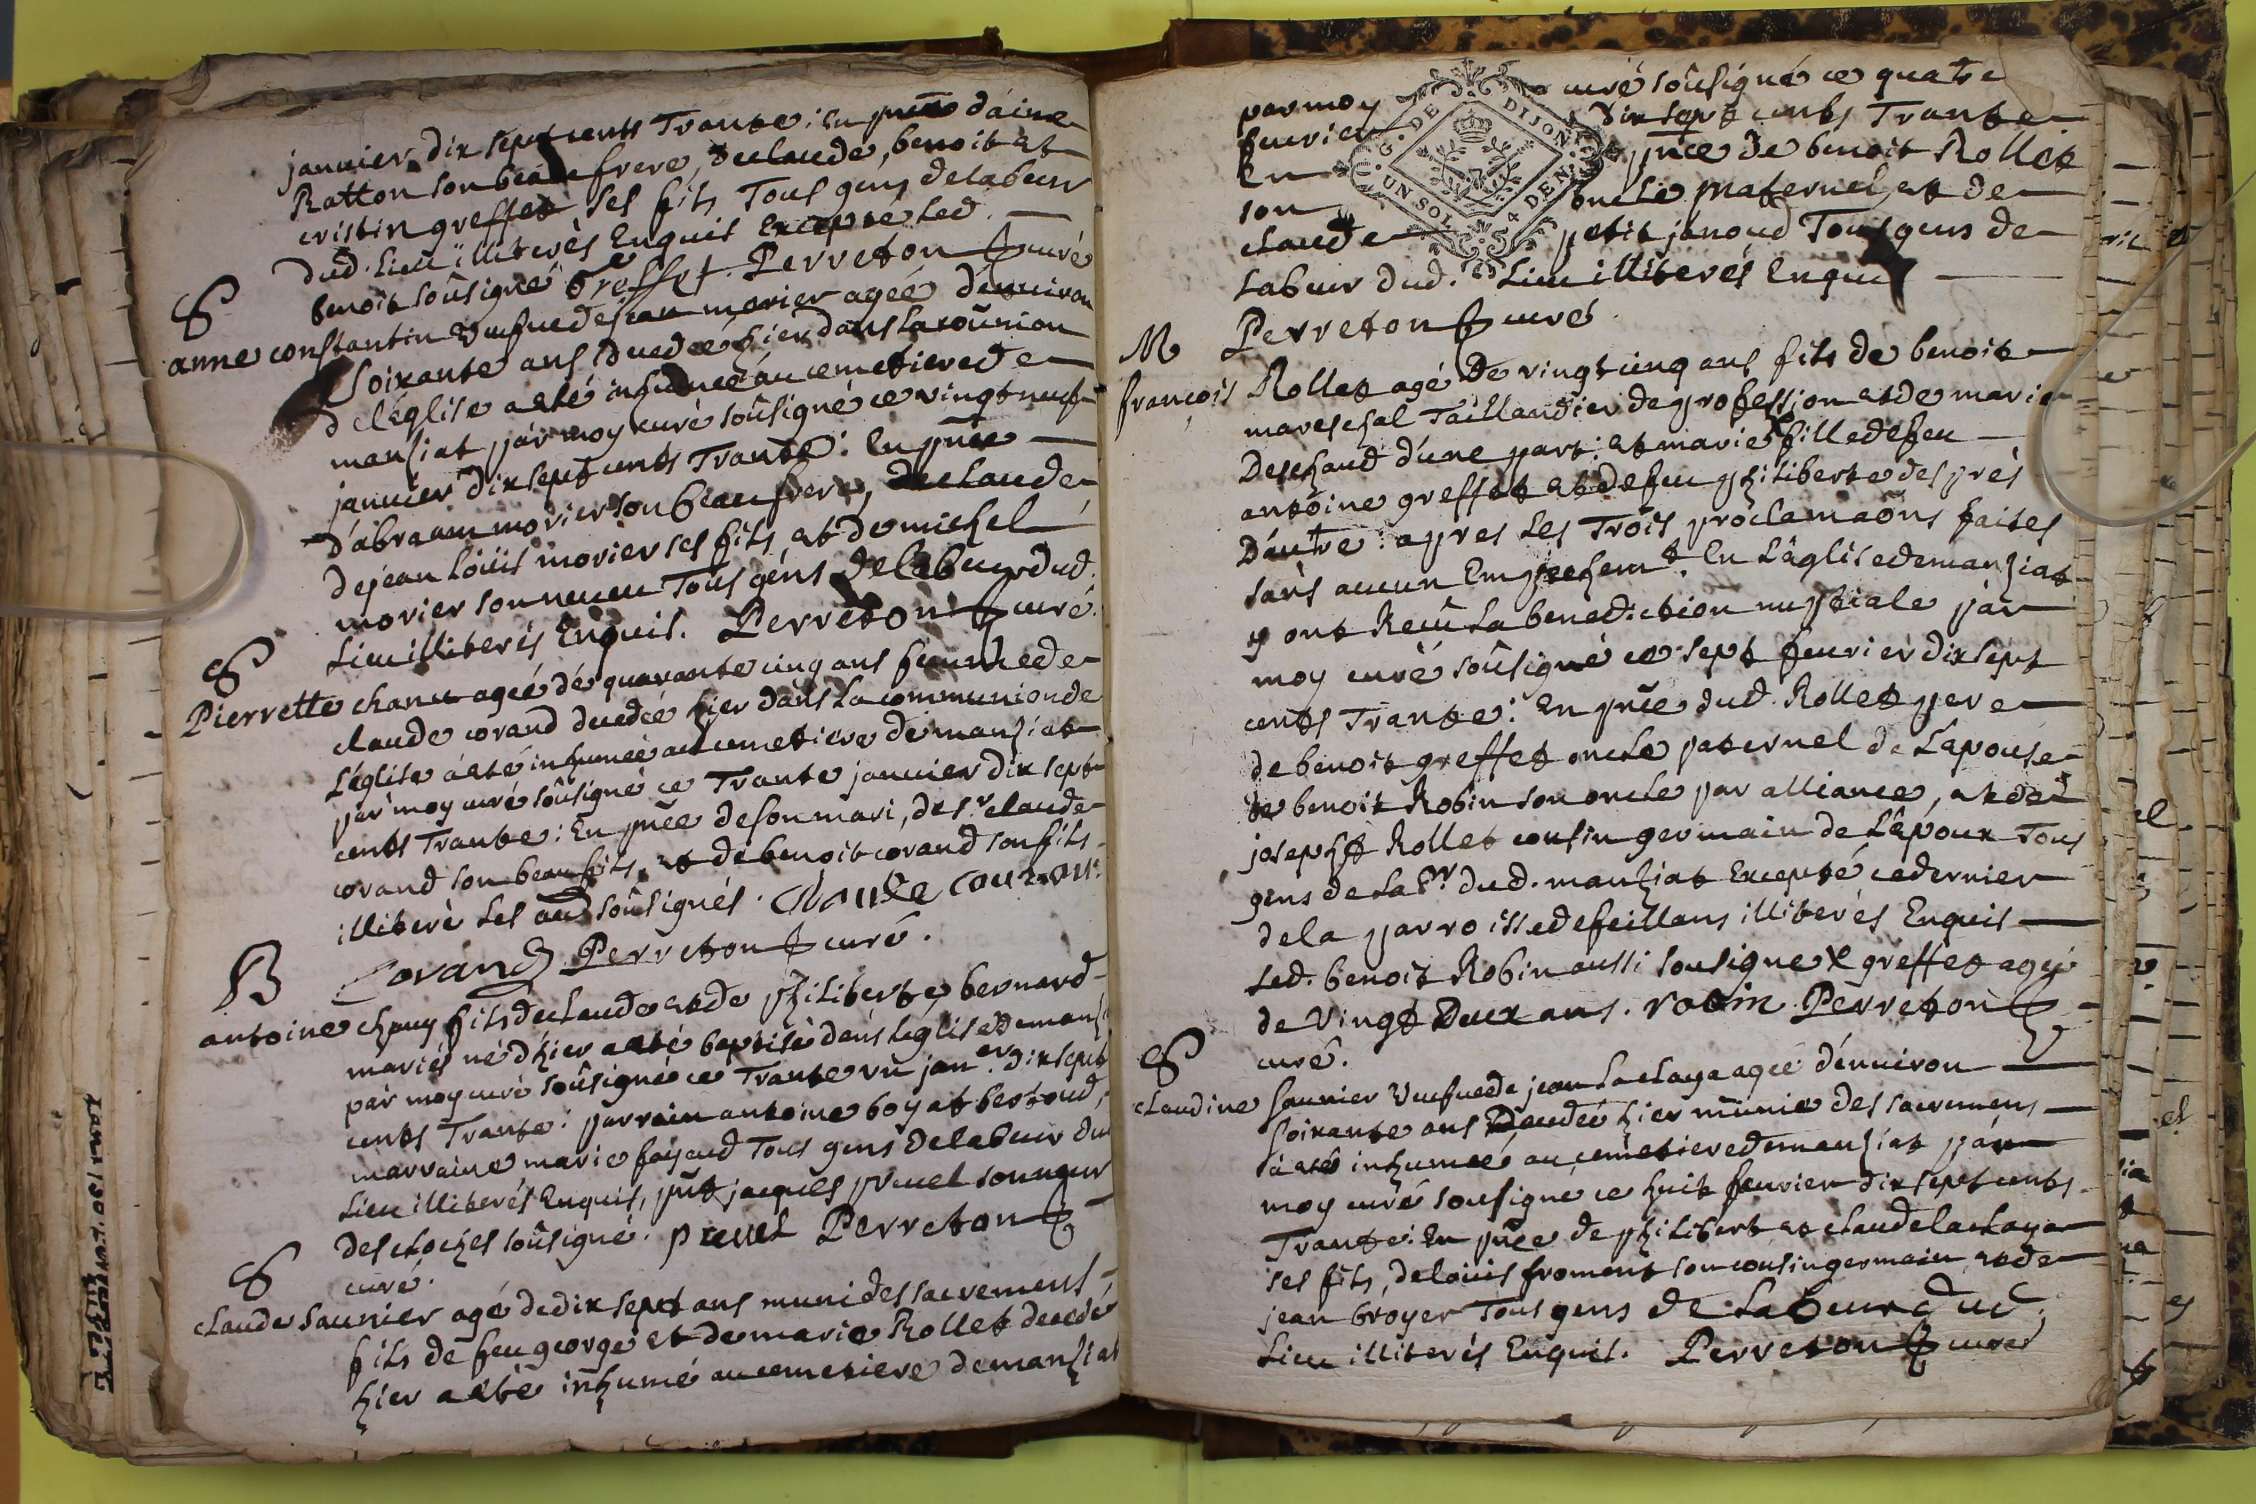 janvier dix sept cents Trante : En pnce d'aimé
Ratton son beau frere, de claude, benoit et
cristin greffet ses fils Tous gens de labeur
dud. Lieu illiterès Enquis Excepté led.
benoit soûsigné Greffet. Perreton curé
S
anne constantin veufue de jean morier ageé d'enuiron
Soixante ans decedeé hier dans la coûnion
d el'église a eté inhumeé au cemetiere de
manziat pàr moy curé soûsigné ce vingt neuf
januier dix sept cents Trante : En pnce
d'abraam morier son beau frere, de claude
de jean loüis morier ses fils, et de michel
morier son neueu Tous gens de labeur dud.
Lieu illiterés Enquis. Perreton curé.
S
Pierrette chanu ageé de quarante cinq ans femme de
claude corand decedeé hier dans la communion de
L'église a eté inhumeé au cemetiere de manziat
par moy curé soûsigné ce Trante januier dix sept
cents Trante : En pnce de son mari, de sr. claude
corand son beau fils, et de benoit corand son fils
illiteré Les aud. soûsignés. Claude
Corand Perreton curé.
B
antoine chpuy fils de claude et de philiberte bernard
mariés né d'hier a eté baptisé dans l'eglise de manzi
pàr moy curé soûsigné ce Trante un jan.er dix sept
cents Trante : parrain antoine boyat bertoud,
marraine marie fayoud Tous gens de labeur du
Lieu illiterés Enquis, pnt jacques pruel sonneur
des cloches soûsigné. pruel Perreton
curé.
S
claude saunier agé de dix sept ans muni des sacremens
fils de feu george et de marie Rollet decedé
hier a eté inhumé au cemetiere de manziat
par moy curé soûsigné ce quatre
feurier dix sept cents Trante
En pnce de benoit Rollet
son oncle maternel, et de
claude petit janoud Tous gens de
Labeur dud. Lieu illiterés Enquis
Perreton curé
G. DE DIJON
UN SOL 4 DEN.
M
françois Rollet agé de vingt cinq ans fils de benoit
mareschal Taillandier de profession et de marie
Deschaud d'une part : et marie x fille de feu
antoine greffet et de feu philiberte des prés
D'autre : apres Les Trois proclamaons faites
sans aucun Empechemt. En L'église de manziat
y ont Receu La benediction nuptiale pàr
moy curé soûsigné ce sept feurier dix sept
cents Trante : En pnce dud. Rollet pere
de benoit greffet oncle paternel de L'epouse
de benoit Robin son oncle par alliance, et de
joseph Rollet cousin germain de L'epoux Tous
gens de La.br dud. manziat Excepté ce dernier
de la parroisse de feillans illiterés Enquis
Led. benoit Robin aussi sousigne x greffet ageé
de vingt deux ans. robin Perreton
curé.
S
claudine saunier veufue de jean La claye ageé d'enuiron
soixante ans Decedeé hier munie des sacremens
a eté inhumeé au cemetiere de manziat pàr
moy curé sousigne ce huit feurier dix sept cents
Trante : En pnce de philibert et claude la claye
ses fils, de loüis froment son cousin germain, et de
jean broyer Tous gens de Labeur dud.
Lieu illiterés Enquis. Perreton curé